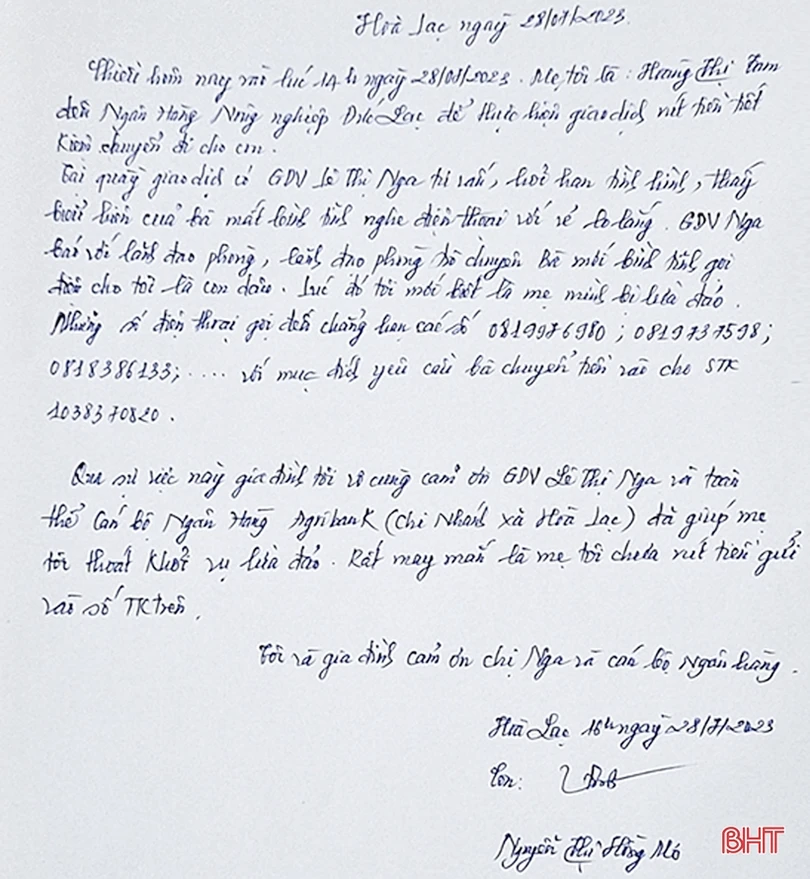 Hoà Lạc ngày 28/07/2023.
Chiều hôm nay vào lúc 14h ngày 28/07/2023. Mẹ tôi là: Hoàng Thị Tam
đến Ngân Hàng Nông nghiệp Đức Lạc để thực hiện giao dịch rút tiền tiết
kiệm chuyển đi cho con.
Tại quầy giao dịch có GDV Lê Thị Nga tư vấn, hỏi han tình hình, thấy
biểu hiện của bà mất bình tĩnh nghe điện thoại với vẻ lo lắng. GDV Nga
báo với lãnh đạo phòng, lãnh đạo phòng trò chuyện Bà mới bình tĩnh gọi
điện cho tôi là con dâu. Lúc đó tôi mới biết là mẹ mình bị lừa đảo.
Những số điện thoại gọi đến chẳng hạn các số 0819976980; 0819737598;
0818386133; .... với mục đích yêu cầu bà chuyển tiền vào cho STK
1038370820.
Qua sự việc này gia đình tôi vô cùng cảm ơn GDV Lê Thị Nga và toàn
thể Cán bộ Ngân Hàng Agribank (Chi Nhánh xã Hoà Lạc) đã giúp mẹ
tôi thoát khỏi vụ lừa đảo. Rất may mắn là mẹ tôi chưa rút tiền gửi
vào số TK trên.
Tôi và gia đình cảm ơn chị Nga và cán bộ Ngân hàng.
Hoà Lạc 16h ngày 28/7/2023
Con:
Nguyễn Thị Hồng Mơ
BHT